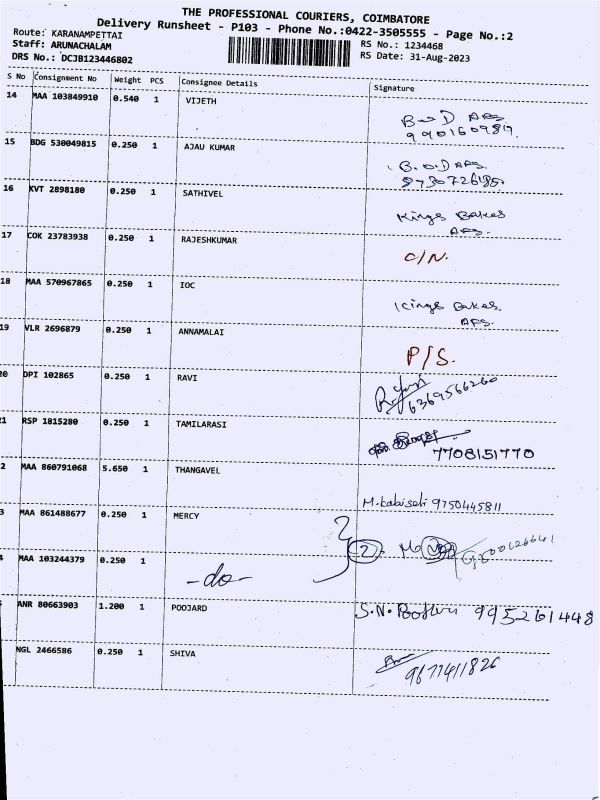 THE PROFESSIONAL COURIERS, COIMBATORE
Delivery Runsheet - P103 - Phone No.:0422-3505555 - Page No.:2
Route: KARANAMPETTAI
RS No.: 1234468
Staff: ARUNACHALAM
RS Date: 31-Aug-2023
DRS No.: DCJB123446802
S No Consignment No Weight PCS Consignee Details Signature
14 MAA 103849910 0.540 1 VIJETH
15 BDG 530049815 0.250 1 AJAU KUMAR
16 KVT 2898180 0.250 1 SATHIVEL
Kings Bakes
17 COK 23783938 0.250 1 RAJESHKUMAR
C/N.
18 MAA 570967865 0.250 1 IOC
Kings Bakes
19 VLR 2696879 0.250 1 ANNAMALAI
P/S.
20 DPI 102865 0.250 1 RAVI
6369566260
21 RSP 1815280 0.250 1 TAMILARASI
7708151770
2 MAA 860791068 5.650 1 THANGAVEL
9750445811
3 MAA 861488677 0.250 1 MERCY
2
4 MAA 103244379 0.250 1
-do-
ANR 80663903 1.200 1 POOJARD
S.N. 995261448
NGL 2466586 0.250 1 SHIVA
9677411826